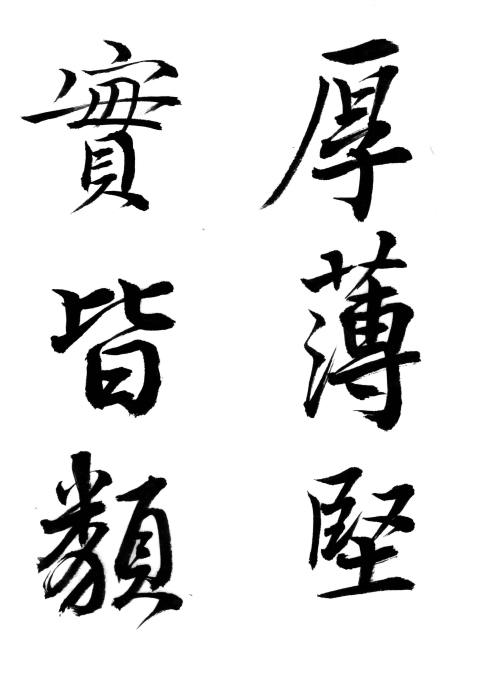 厚薄堅
實皆類